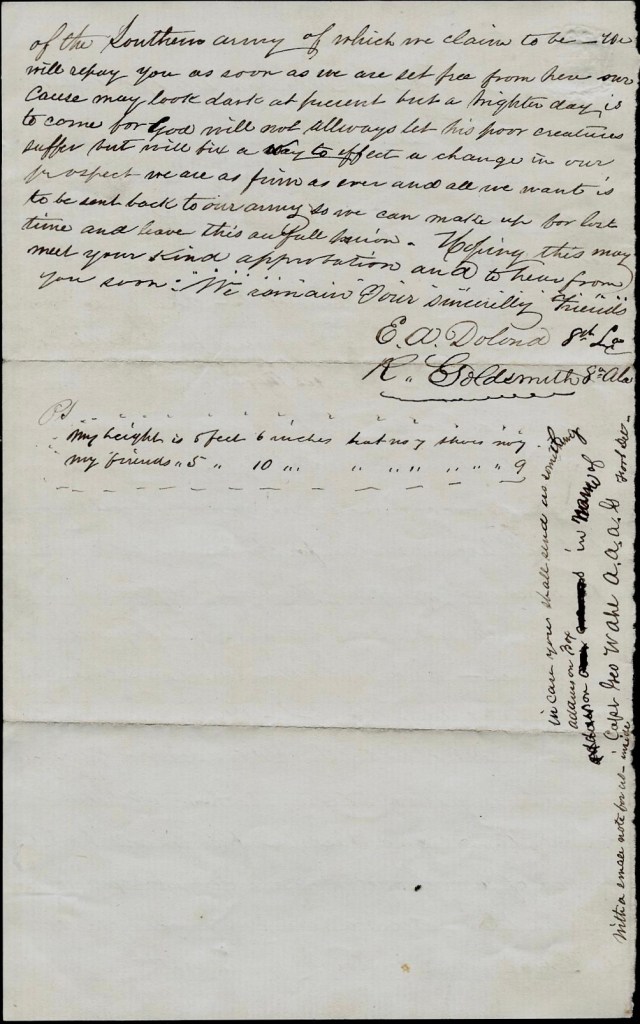 of the Southern army of which we claim to be – We
will repay you as soon as we are set free from here our
Cause may look dark at present but a brighter day is
to come for God will not allways let his poor creatures
suffer but will fix a way to effect a change in our
prospect we are as firm as ever and all we want is
to be sent back to our army so we can make up for lost
time and leave this aufull prison – Hoping this may
meet your kind approbation and to hear from
you soon: We remain Your sincerilly friends
E. A. Dolond 8th La
R. Goldsmith 8th Ala
PS
My height is 5 feet 6 inches hat no 7 shoes no 7
my friends " 5 " 10 " " " " " " " 9
in case you shall send us something
adams on Box
in name of
Capt Geo W Ahl A.A.A.G Fort Del–
with a small note for us – inside